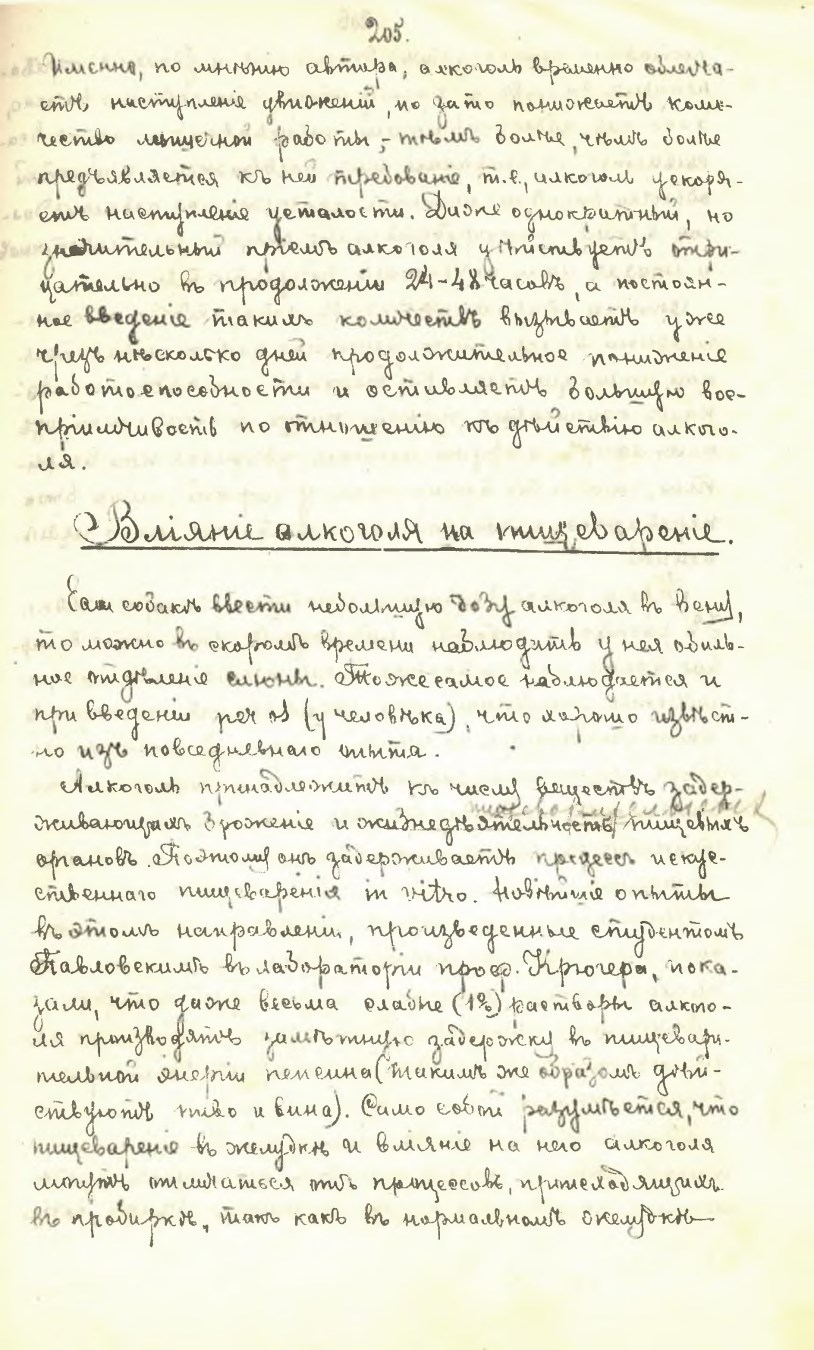 205.
Именно, по мнѣнію автора, алкоголь временно облегча-
етъ наступленіе движеній, но зато понижаетъ коли-
чество мышечной работы, – тѣмъ болѣе, чѣмъ болѣе
предъявляется къ ней требованіе, т.е., алкоголь ускоря-
етъ наступленіе усталости. Даже однократный, но
значительный пріемъ алкоголя дѣйствуетъ отри-
цательно въ продолженіи 24-48 часовъ, а постоян-
ное введеніе такимъ количествъ вызываетъ уже
чрезъ нѣсколько дней продолжительное пониженіе
работоспособности и оставляетъ большую вос-
пріимчивость по отношенію къ дѣйствію алкого-
ля.
Вліяніе алкоголя на пищевареніе.
Если собакѣ ввести небольшую дозу алкоголя въ вену,
то можно въ скоромъ времени наблюдать у нея обиль-
ное отдѣленіе слюны. Тоже самое наблюдается и
при введеніи per os (у человѣка), что хорошо извѣст-
но изъ повседневнаго опыта.
Алкоголь принадлежитъ къ числу веществъ задер-
живающихъ броженіе и жизнедѣятельность пищевыхъ
органовъ. Поэтому онъ задерживаетъ процессъ искус-
ственнаго пищеваренія in vitro. Новѣйшіе опыты
въ этомъ направленіи, произведенные студентомъ
Павловскимъ въ лабораторіи проф. Крюгера, пока-
зали, что даже весьма слабые (1%) растворы алкого-
ля производятъ замѣтную задержку въ пищевари-
тельной энергіи пепсина (такимъ же образомъ дѣй-
ствуютъ пиво и вина). Само собой разумѣется, что
пищевареніе въ желудкѣ и вліяніе на него алкоголя
могутъ отличаться отъ процессовъ, происходящихъ
въ пробиркѣ, такъ какъ въ нормальномъ желудкѣ